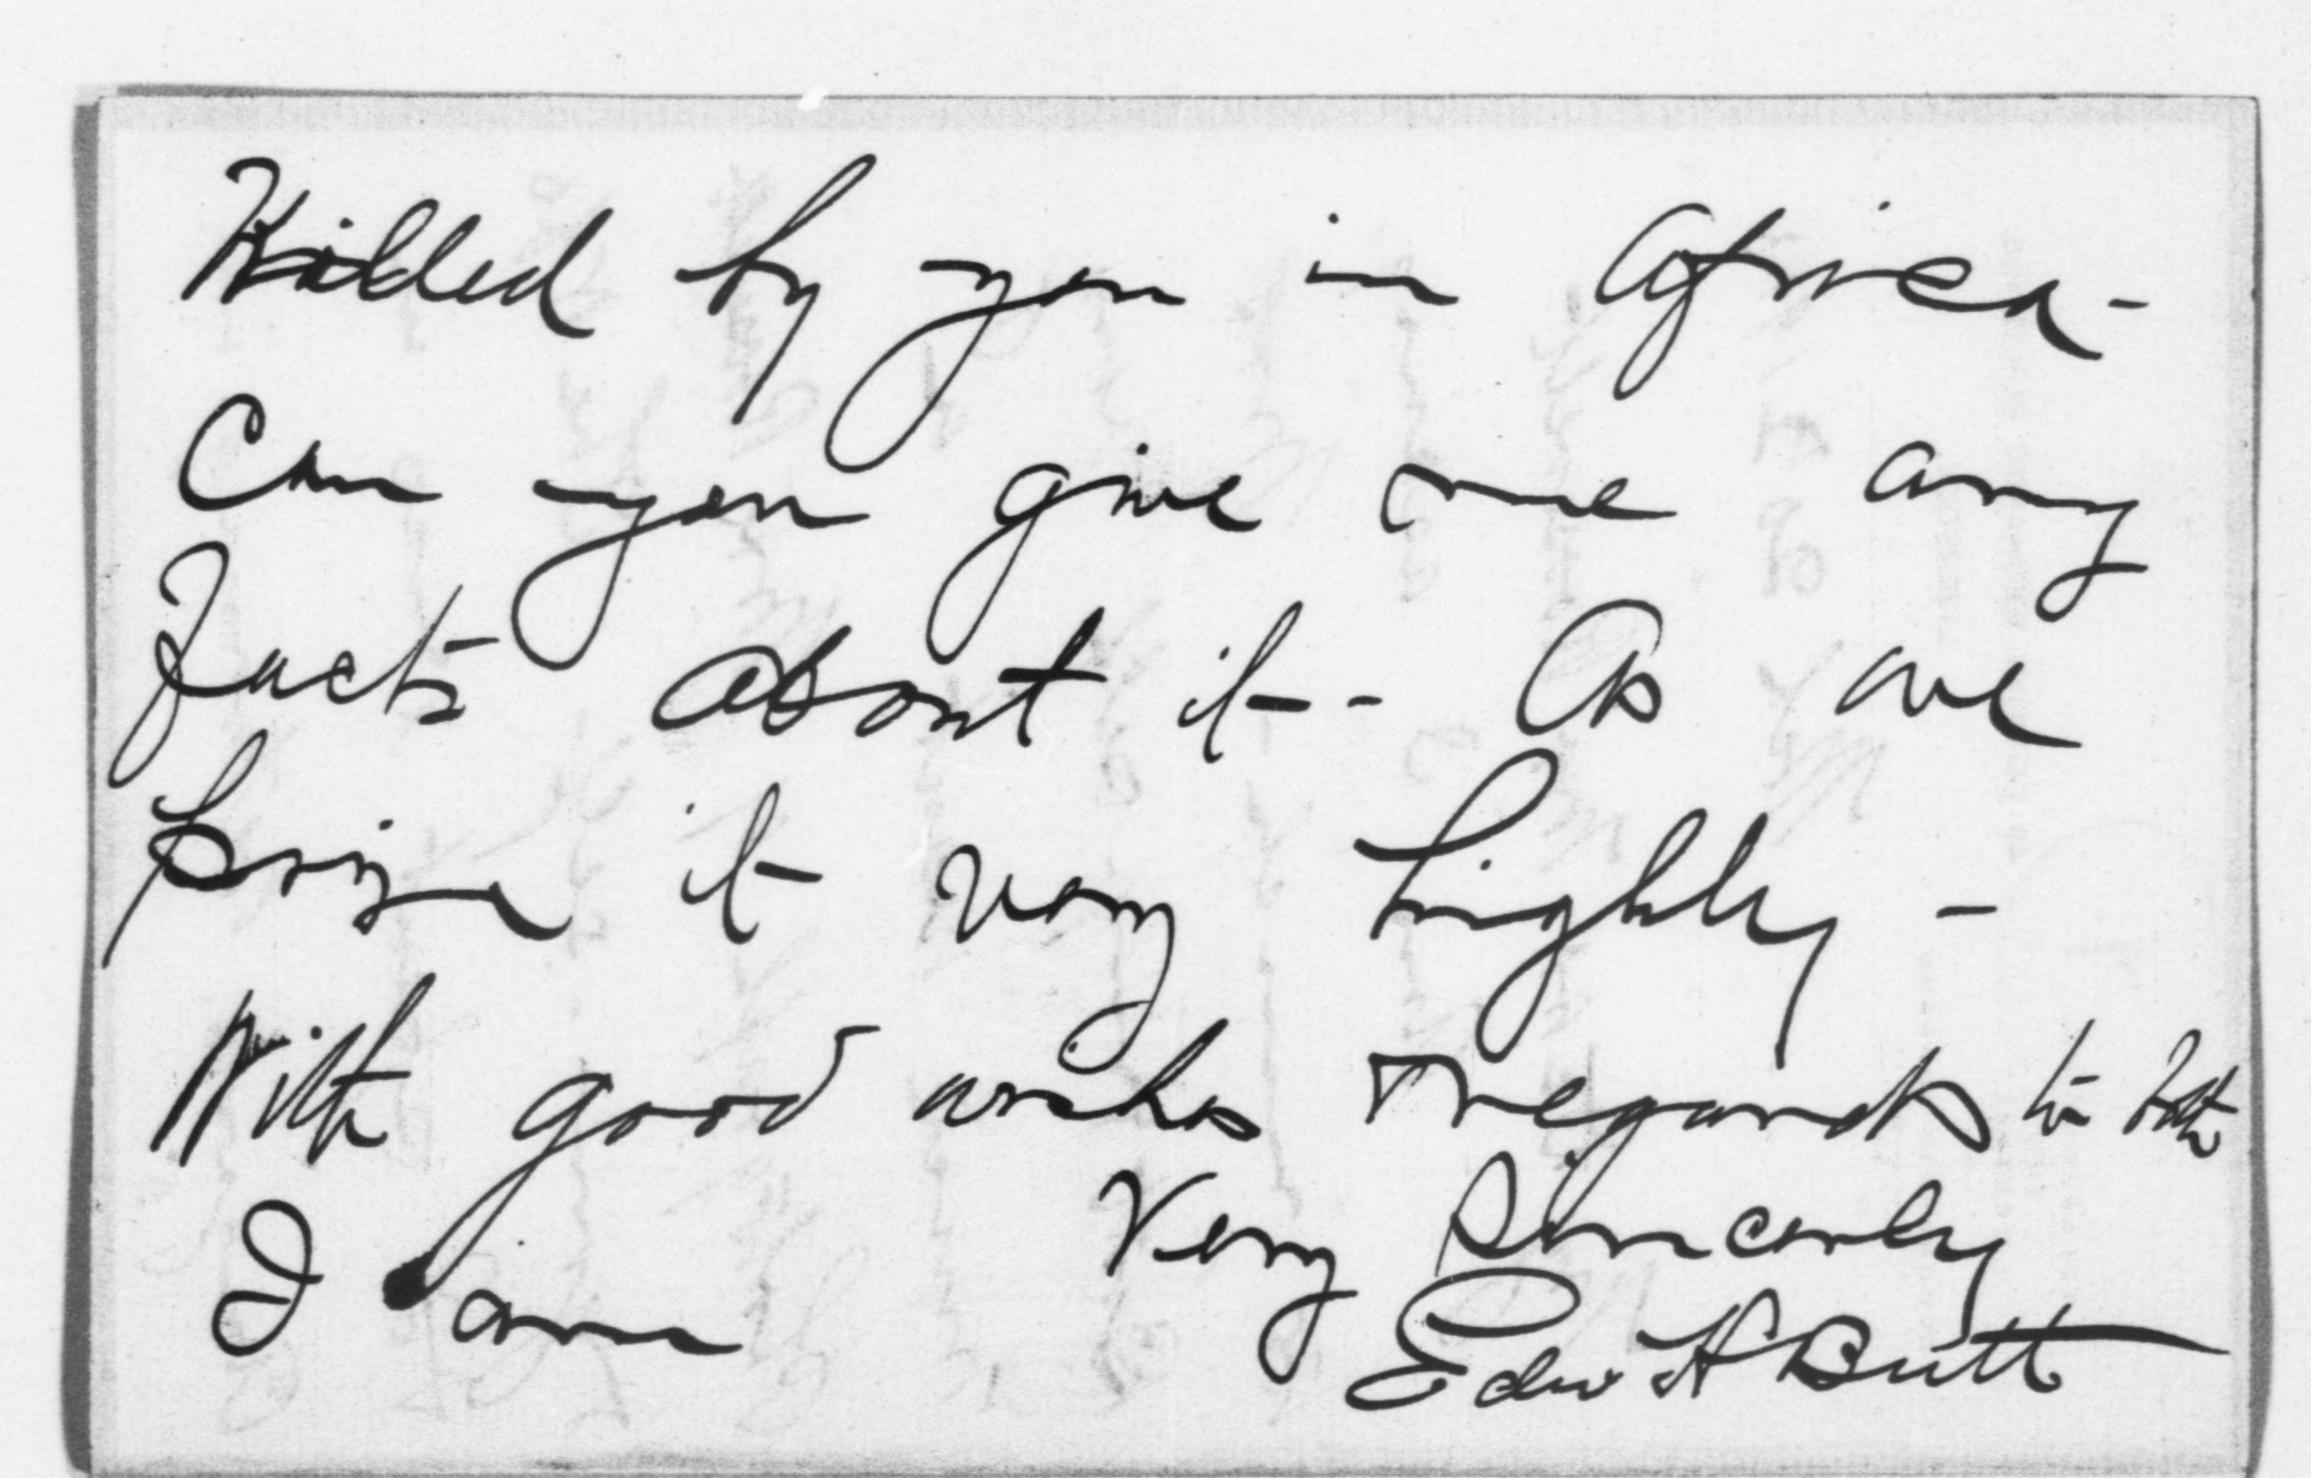 Killed by you in Africa-
Can you give me any
Facts about it-- As we
prize it very highly -
With good wishes & regards to both
I am Very Sincerely
Edw H Butt